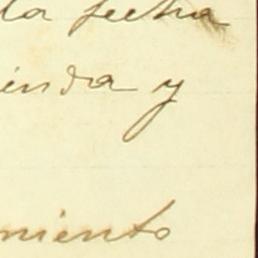 la fecha
inda y
miento